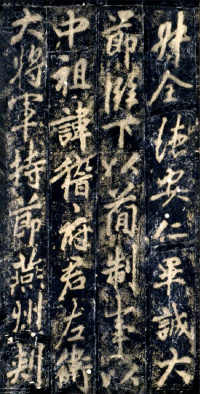 令德安仁誠大
節臨下以簡制事以
中祖諱稽府君左衛
大將軍持節燕州刺